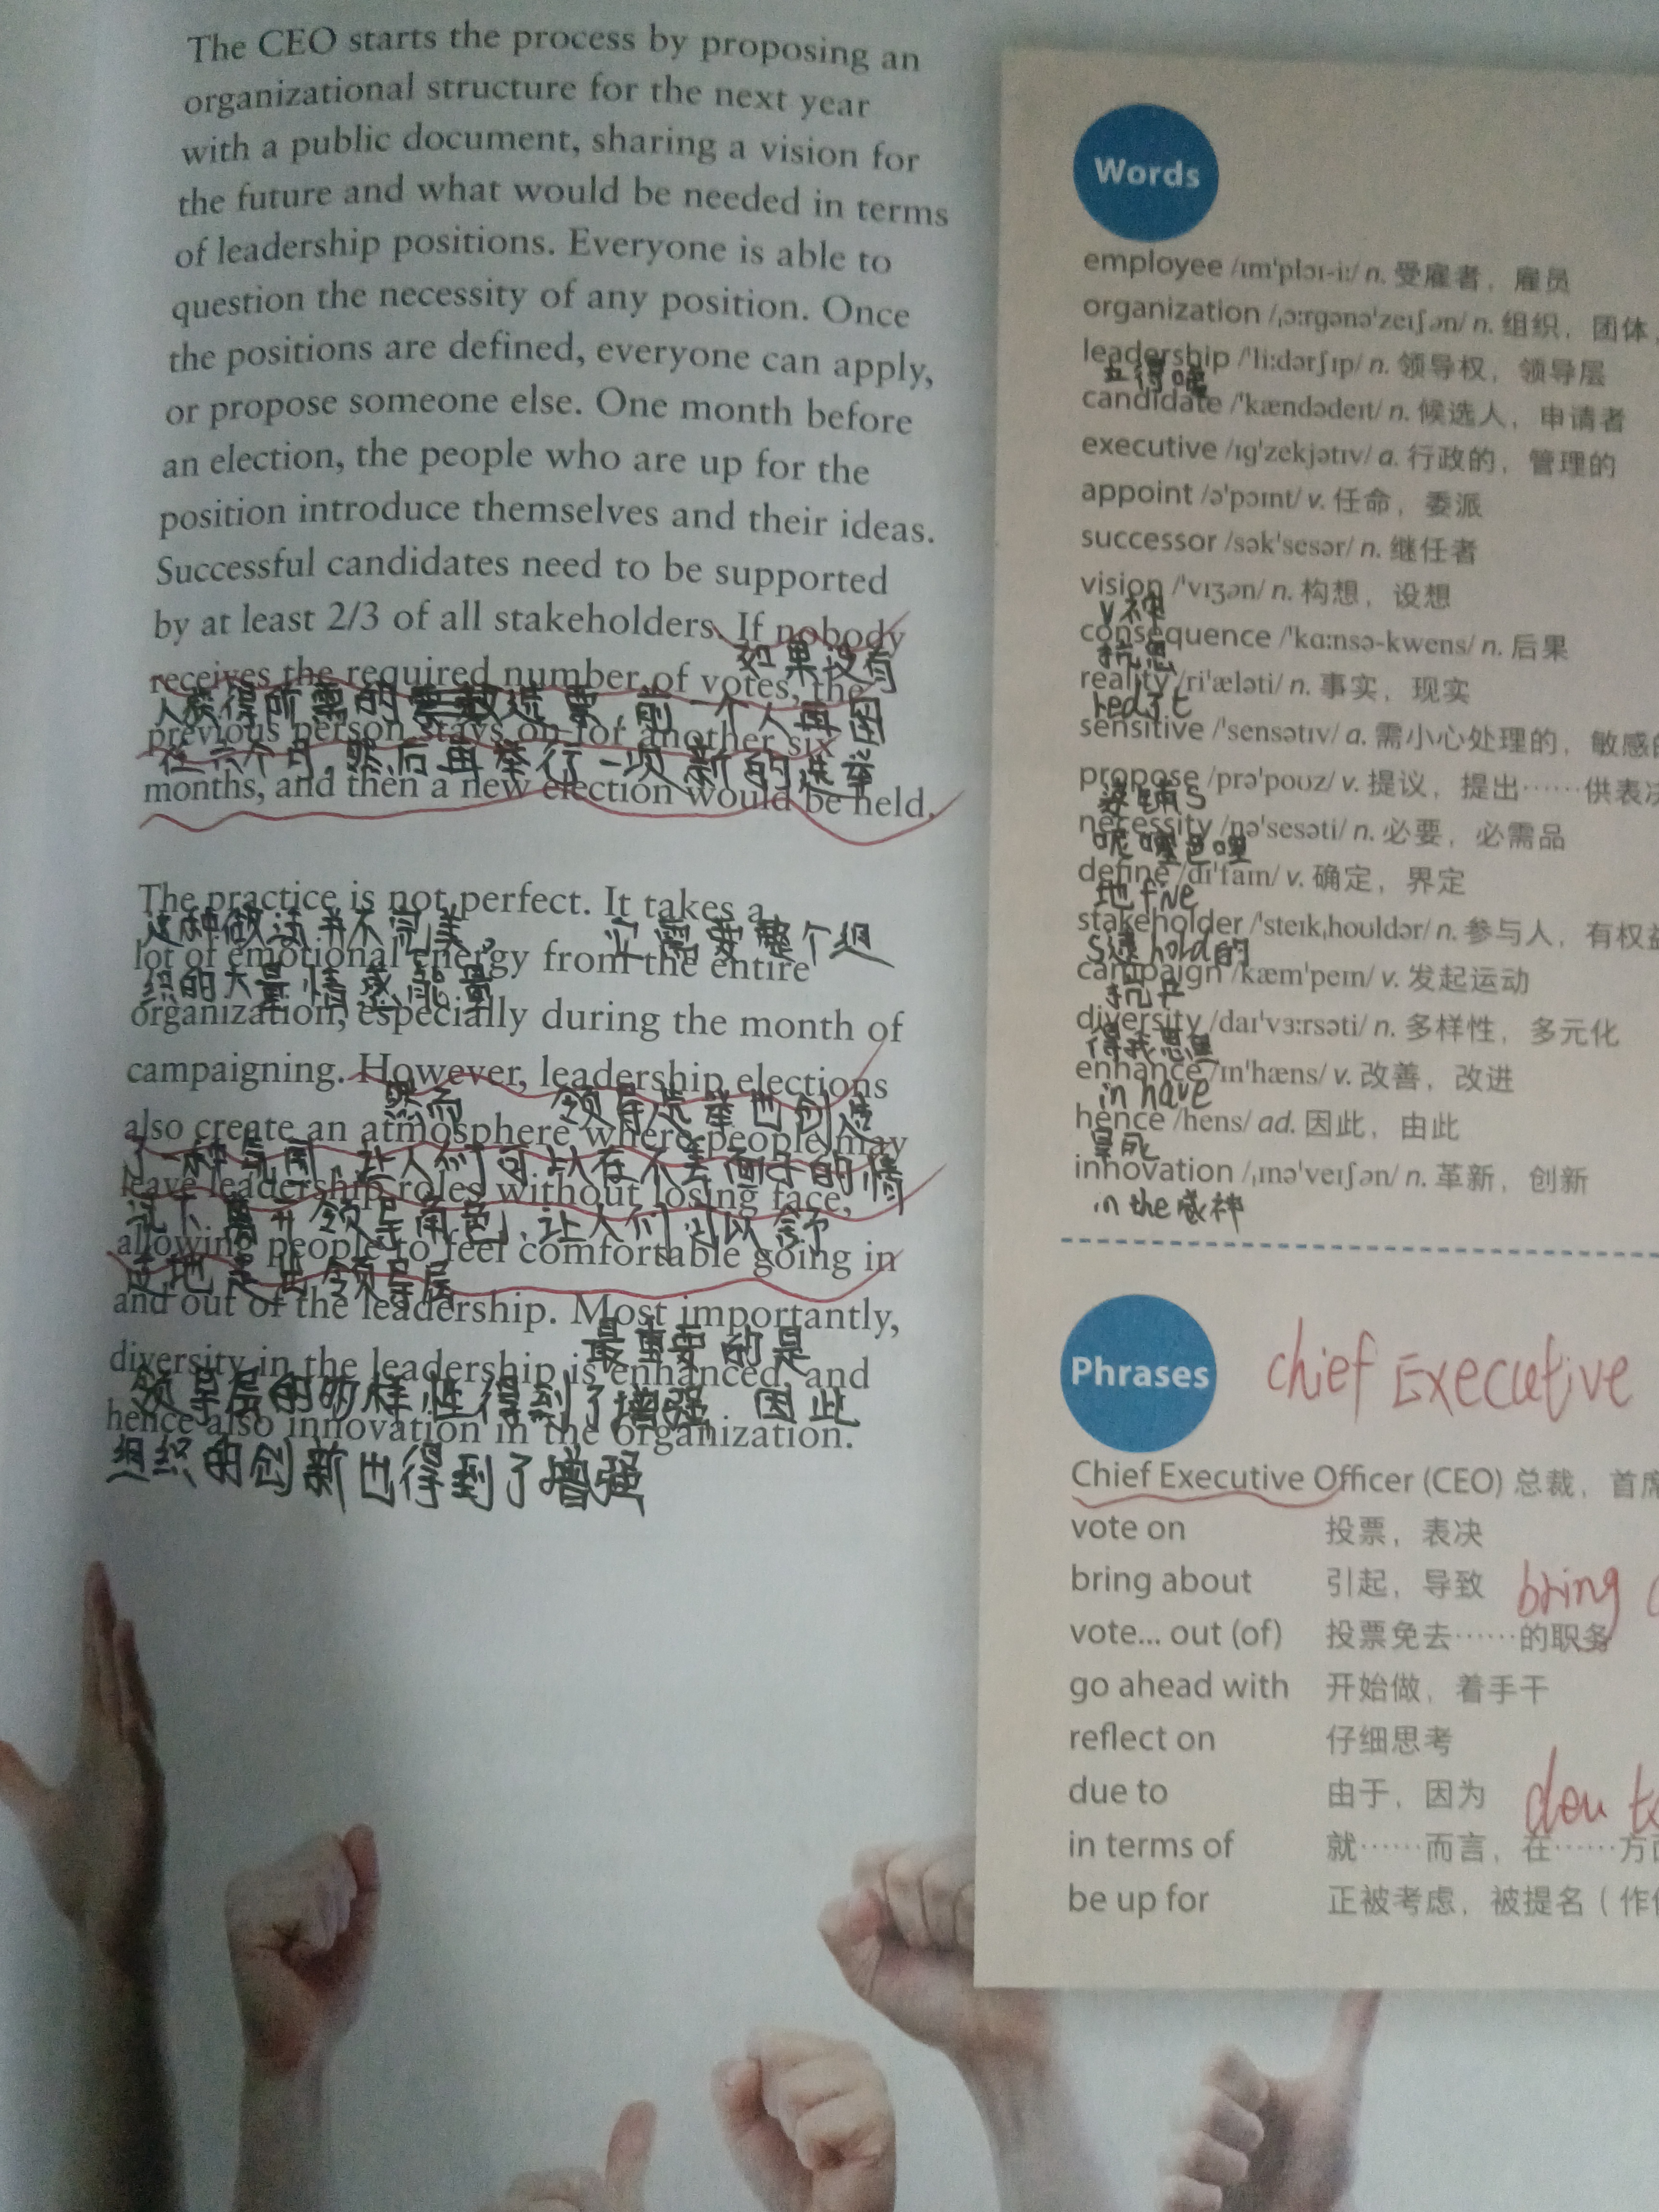 The CEO starts the process by proposing an
organizational structure for the next year
with a public document, sharing a vision for
the future and what would be needed in terms
of leadership positions. Everyone is able to
question the necessity of any position. Once
the positions are defined, everyone can apply,
or propose someone else. One month before
an election, the people who are up for the
position introduce themselves and their ideas.
Successful candidates need to be supported
by at least 2/3 of all stakeholders. If nobody
如果没有
receives the required number of votes, the
人获得所需的选票,前一个人再留
previous person stays on for another six
任六个月,然后再举行一项新的选举
months, and then a new election would be held.
The practice is not perfect. It takes a
这种做法并不完美, 它需要整个组
lot of emotional energy from the entire
织的大量情感能量
organization, especially during the month of
campaigning. However, leadership elections
然而 领导选举也创造
also create an atmosphere where people may
了一种氛围,让人们可以在不丢面子的情
leave leadership roles without losing face,
况下离开领导角色,让人们可以舒
allowing people to feel comfortable going in
适地走出领导层
and out of the leadership. Most importantly,
最重要的是
diversity in the leadership is enhanced, and
领导层的多样性得到了增强 因此
hence also innovation in the organization.
组织的创新也得到了增强
Words
employee /ɪmˈplɔɪ-iː/ n. 受雇者,雇员
organization /ˌɔːrɡənəˈzeɪʃən/ n. 组织,团体,
leadership /ˈliːdərʃɪp/ n. 领导权,领导层
candidate /ˈkændədeɪt/ n. 候选人,申请者
executive /ɪɡˈzekjətɪv/ a. 行政的,管理的
appoint /əˈpɔɪnt/ v. 任命,委派
successor /səkˈsesər/ n. 继任者
vision /ˈvɪʒən/ n. 构想,设想
v神
consequence /ˈkɑːnsə-kwens/ n. 后果
reality /riˈæləti/ n. 事实,现实
sensitive /ˈsensətɪv/ a. 需小心处理的,敏感的
propose /prəˈpoʊz/ v. 提议,提出……供表决
necessity /nəˈsesəti/ n. 必要,必需品
define /dɪˈfaɪn/ v. 确定,界定
地five
stakeholder /ˈsteɪkˌhoʊldər/ n. 参与人,有权益
campaign /kæmˈpeɪn/ v. 发起运动
diversity /daɪˈvɜːrsəti/ n. 多样性,多元化
得我思里
enhance /ɪnˈhæns/ v. 改善,改进
in have
hence /hens/ ad. 因此,由此
innovation /ˌɪnəˈveɪʃən/ n. 革新,创新
in the威神
Phrases
chief Executive
Chief Executive Officer (CEO) 总裁,首席
vote on 投票,表决
bring about 引起,导致 bring
vote... out (of) 投票免去……的职务
go ahead with 开始做,着手干
reflect on 仔细思考
due to 由于,因为
in terms of 就……而言,在……方面
be up for 正被考虑,被提名(作